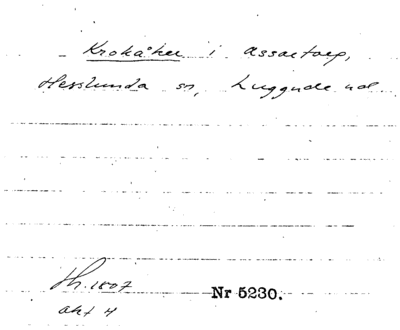 Krokåker i Assartorp,
Hesslunda sn, Luggude hd.
Lh. 1807
akt 4
Nr 5230.